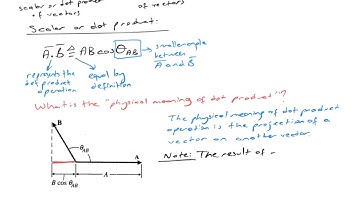 scalar or dot product
of vectors
of vectors
Scalar or dot product:
A̅.B̅ ≜ AB cos θ_AB
smaller angle
between
A̅ and B̅
represents the
dot product
operation
equal by
definition
What is the "physical meaning of dot product"?
The physical meaning of dot product
operation is the projection of a
vector on another vector.
Note: The result of
B
θ_AB
A
B cos θ_AB
A